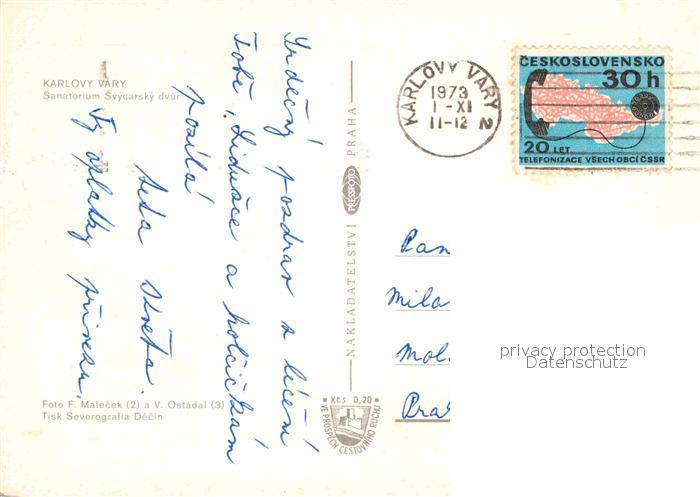 KARLOVY VARY
Sanatorium Švýcarský dvůr
Srdečný pozdrav z léčení
Tobě, Lidušce a holčičkám
posílá
teta Květa.
Ty oplatky přivezu.
Foto F. Maleček (2) a V. Ostádal (3)
Tisk Severografia Děčín
NAKLADATELSTVÍ PRESSFOTO PRAHA
Kčs 0,20
VE PROSPĚCH CESTOVNÍHO RUCHU
KARLOVY VARY 2
1973
1-XI
11-12
ČESKOSLOVENSKO
30 h
20 LET
TELEFONIZACE VŠECH OBCÍ ČSSR
Pan
Mila
Mol
Pra
privacy protection
Datenschutz